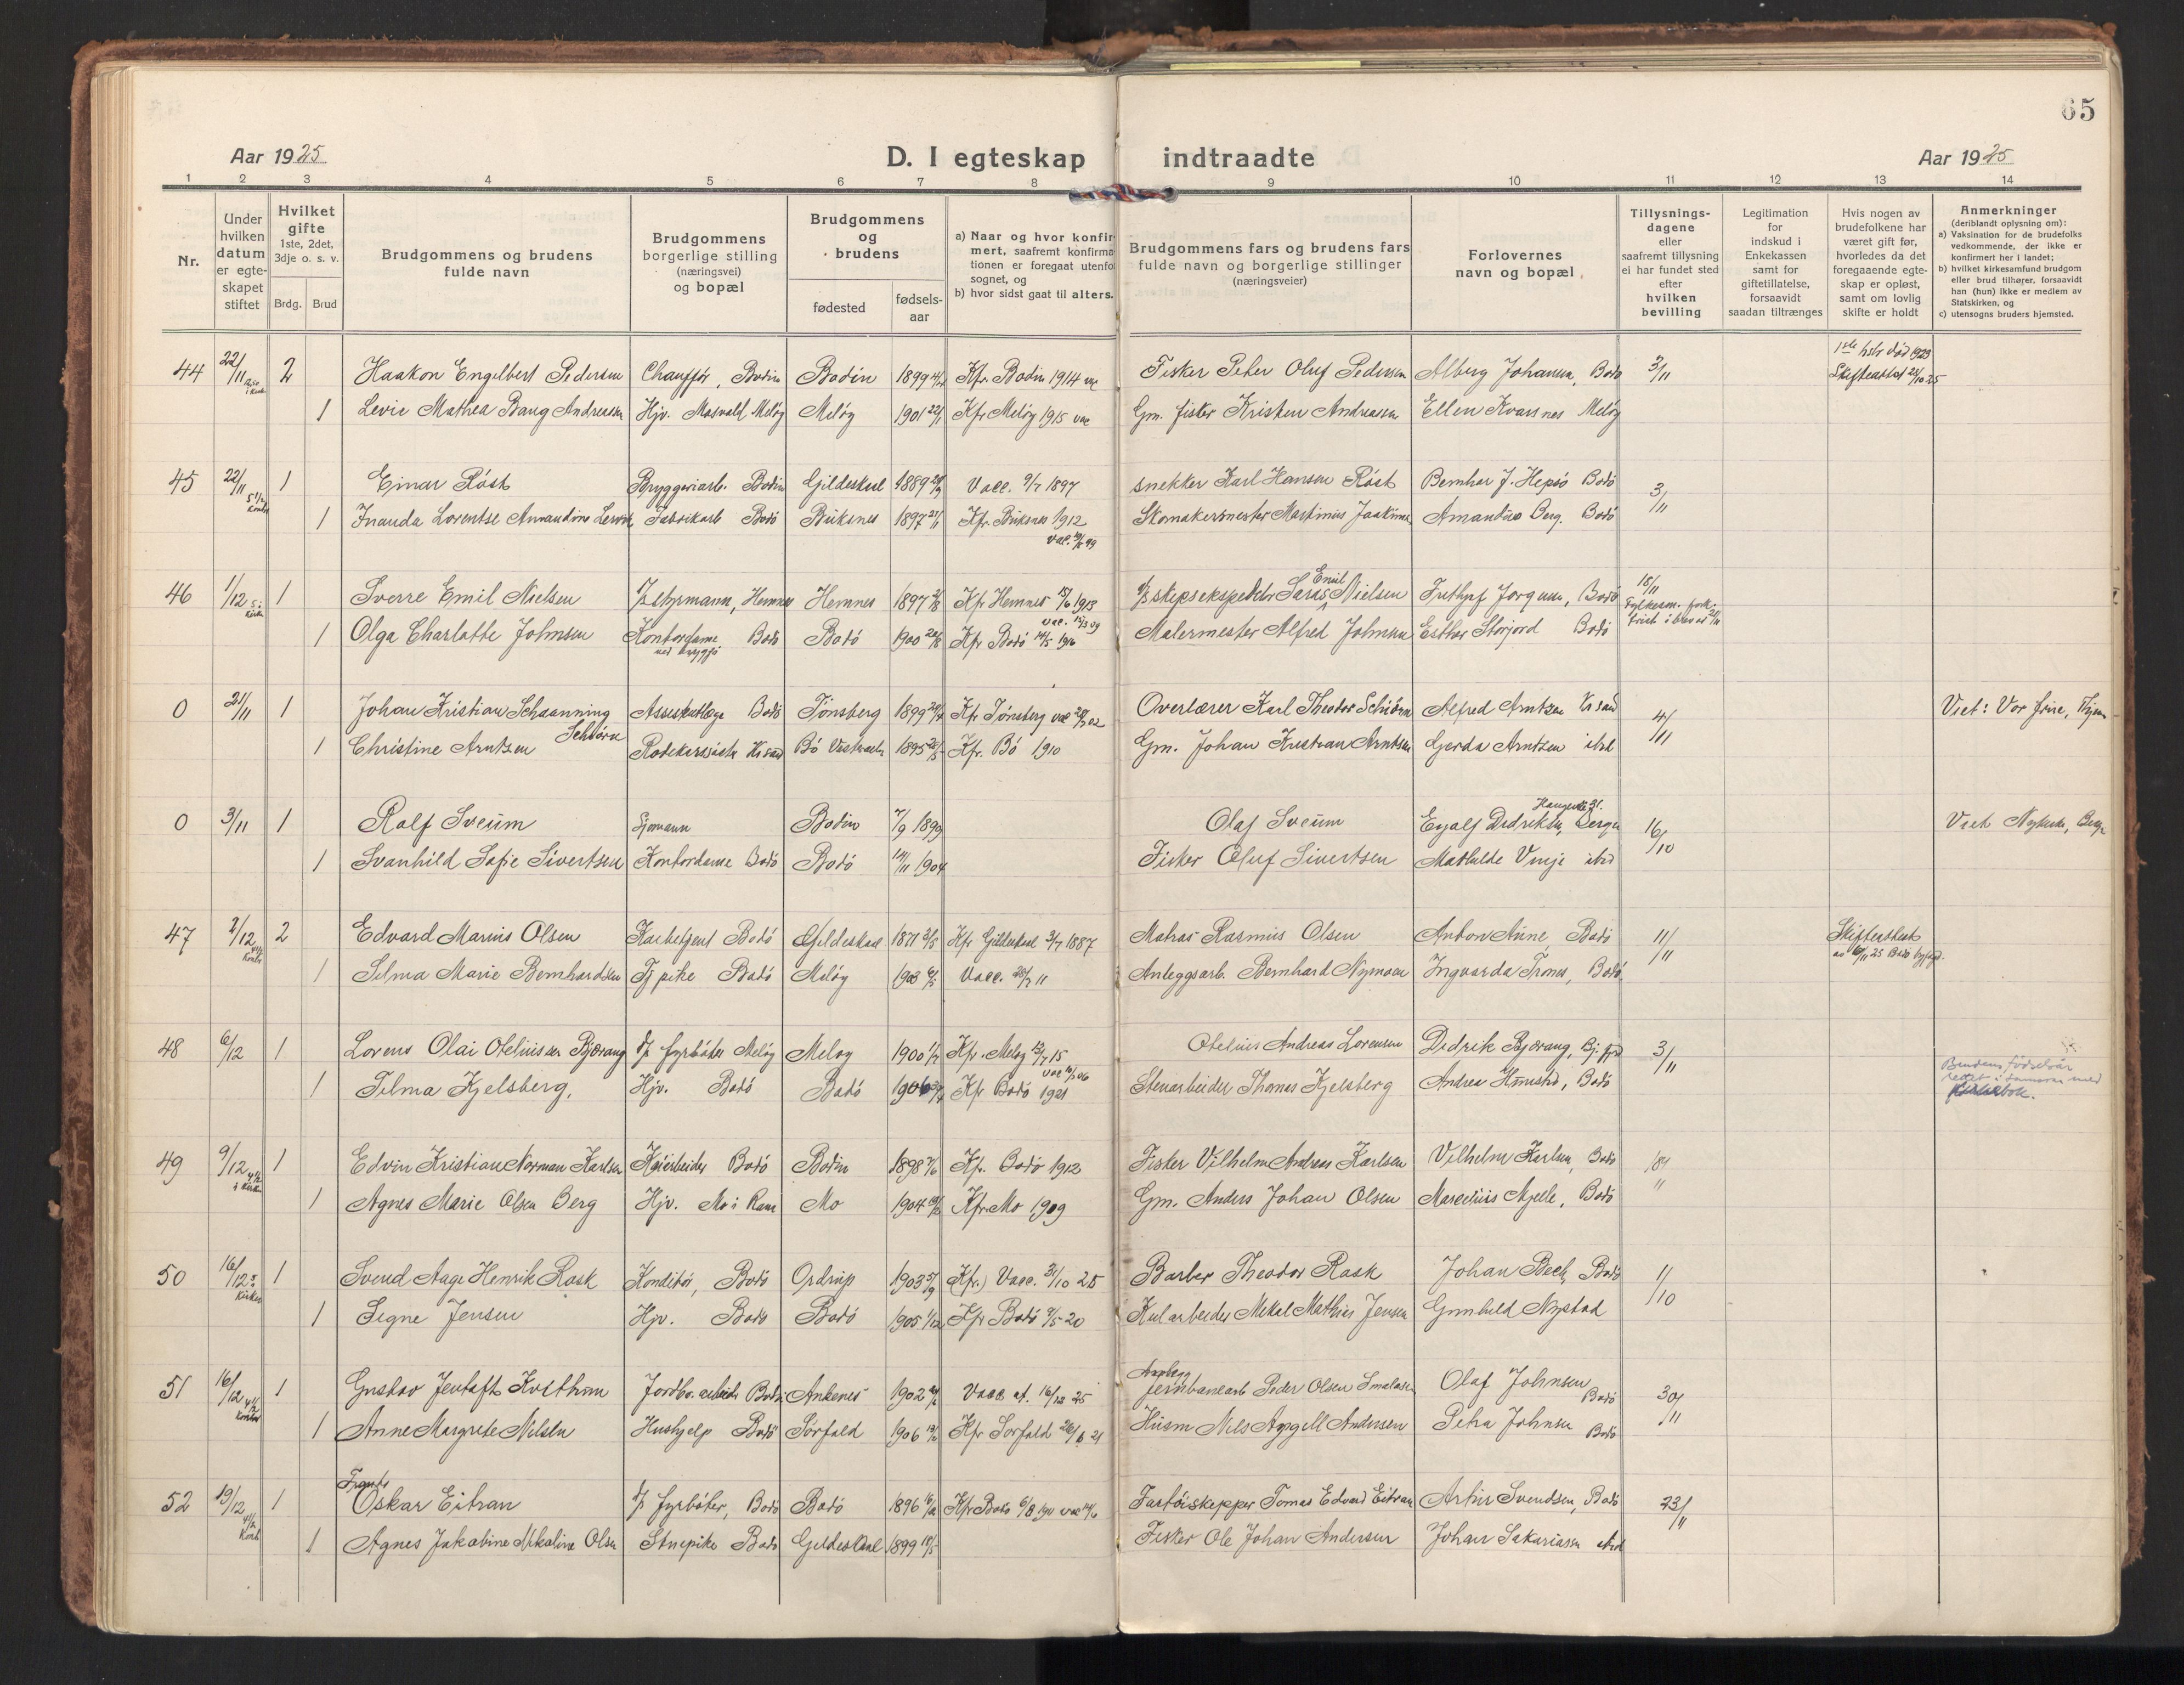 65
Aar 1925
D. I egteskap indtraadte
Aar 1925
1 2 3 4 5 6 7 8 9 10 11 12 13 14
Nr.
Under hvilken datum er egteskapet stiftet
Hvilket gifte 1ste, 2det, 3dje o. s. v.
Brdg. Brud
Brudgommens og brudens fulde navn
Brudgommens borgerlige stilling (næringsvei) og bopæl
Brudgommens og brudens
fødested
fødsels-aar
a) Naar og hvor konfirmert, saafremt konfirmationen er foregaat utenfo sognet, og
b) hvor sidst gaat til alters.
Brudgommens fars og brudens fars fulde navn og borgerlige stillinger (næringsveier)
Forlovernes navn og bopæl
Tillysnings-dagene eller saafremt tillysning ei har fundet sted efter hvilken bevilling
Legitimation for indskud i Enkekassen samt for giftetillatelse, forsaavidt saadan tiltrænges
Hvis nogen av brudefolkene har været gift før, hvorledes da det foregaaende egteskap er opløst, samt om lovlig skifte er holdt
Anmerkninger (deriblandt oplysning om):
a) Vaksination for de brudefolks vedkommende, der ikke er konfirmert her i landet;
b) hvilket kirkesamfund brudgom eller brud tilhører, forsaavidt han (hun) ikke er medlem av Statskirken, og
c) utensogns bruders hjemsted.
44 22/11 2 Haakon Engelbert Pedersen Chauffør, Bodin Bodin 1899 Kfr. Bodin 1914 Fisker Peter Oluf Pedersen Alberg Johansen, Bodø 3/11 1ste hstr død 1923
Skifteattest 22/10 25
1 Levie Mathea Baug Andreassen Hjv. Mosvold Meløy Meløy 1901 22/1 Kfr Meløy 1915 vac Gm. fisker Kristen Andreasen Ellen Kvarsnes Meløy
45 22/11 1 Einar Røst Bryggeriarb. Bodin Gildeskaal 1889 Vacc. 9/7 1897 snekker Karl Hansen Røst Bernhar J. Hepsø Bodø 3/11
1 Inanda Lorentse Amandine Fabrikarb Bodø Buksnes 1897 Kfr. Buksnes 1912 Skomakermester Martinius Jaakim Amandus Berg. Bodø
46 1/12 1 Sverre Emil Nielsen Hemnes Hemnes 1897 Kfr Hemnes 1913 Emil Nielsen Bodø 18/11
1 Olga Charlotte Johnsen Kontordame Bodø Bodø 1900 Kfr Bodø 14/5 1916 Malermester Alfred Johnsen Esther Storjord Bodø
0 21/11 1 Johan Kristian Schaanning Schiørn Assistentlæge Bodø Tønsberg 1899 Kfr Tønsberg vac Overlærer Karl Theodor Schiørn Alfred Arntzen Kr sand 4/11 Viet: Vor frue, Thjem
1 Christine Arntsen Rødekorssøster Kr sand Bø Vesteraal 1895 Kfr. Bø 1910 Gm. Johan Kristian Arntsen Gerda Arntzen ibid
0 3/11 1 Rolf Sveum Sjømann Bodin 7/9 1899 Olaf Sveum Eyolf Didriksen Bergen 16/10 Viet Nykirk, Berge
1 Svanhild Sofie Sivertsen Kontordame Bodø Bodø 14/11 1904 Fisker Oluf Sivertsen Mathilde Vinje ibid
47 2/12 2 Edvard Marius Olsen Bodø Gildeskaal 1871 3/5 Kfr Gildeskaal 3/7 1887 Matros Rasmus Olsen Anton Aune, Bodø 11/11 Skifteattest
1 Selma Marie Bernhardsen Tj pike Bodø Meløy 1903 Vacc. 11 Anleggsarb. Bernhard Nymoen Ingvarda Trones, Bodø
48 6/12 1 Lorens Olai Oteliussen Bjærang fyrbøter Meløy Meløy 1900 Kfr. Meløy 15 Otelius Andreas Lorensen Didrik Bjærang, 3/11
1 Tilma Kjelsberg, Hjv. Bodø Bodø 1906 Kfr Bodø 1921 Stenarbeider Thomas Kjelsberg Andrea Bodø Brudens fødselsår rettet i samsvar med kirkebok.
49 9/12 1 Edvin Kristian Norman Karlsen Bodø Bodin 1898 Kfr. Bodø 1912 Fisker Vilhelm Andreas Karlsen Vilhelm Karlsen, Bodø 18/11
1 Agnes Marie Olsen Berg Hjv. Mo i Rana Mo 1904 Kfr Mo 1909 Gm. Anders Johan Olsen Marcelius Mjelle, Bodø
50 16/12 1 Svend Aage Henrik Rask Konditor, Bodø Ordrup 1903 (Kfr.) Vacc. 31/10 25 Barber Theodor Rask Johan Bech, Bodø 1/10
1 Signe Jensen Hjv. Bodø Bodø 1905 1/12 Kfr Bodø 9/5 20 Kularbeider Mekal Mathias Jensen Gunhild Nystad
51 16/12 1 Gustav Jentoft Kvithun Jordbr. arbeide Bodø Ankenes 1902 Vacc at. 16/12 25 jernbanearb Peder Olsen Olaf Johnsen Bodø 30/11
1 Anne Margrete Nilsen Hushjelp Bodø Sørfold 1906 Kfr Sørfold 21 Husm Nils Andersen Petra Johnsen Bodø
52 19/12 1 Frants Oskar Eitran fyrbøter, Bodø Bodø 1896 Kfr Bodø Fartøiskipper Tomas Edvard Eitran Artur Svendsen, Bodø 23/11
1 Agnes Jakobine Mikaline Olsen Stuepike Bodø Gildeskaal 1899 Fisker Ole Johan Andersen Johan Sakariassen ibid